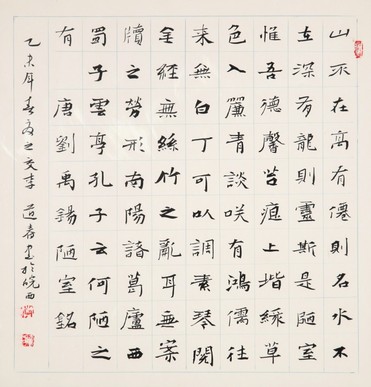 山不在高有僊則名水不
在深有龍則靈斯是陋室
惟吾德馨苔痕上堦緑草
色入簾青談咲有鴻儒往
来無白丁可以調素琴閱
金經無絲竹之亂耳無案
牘之勞形南陽諸葛廬西
蜀子雲亭孔子云何陋之
有 唐劉禹錫陋室銘
乙未年春夏之交李道春書於皖西